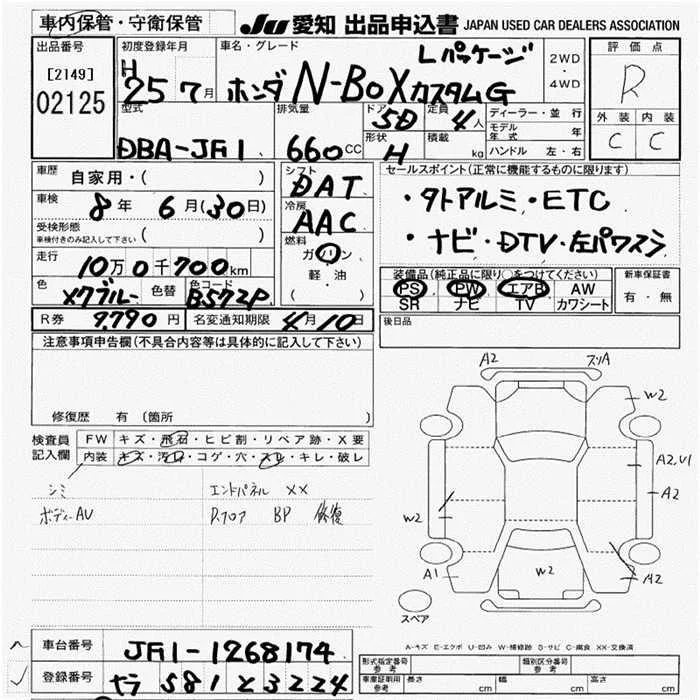 車内保管・守衛保管
JU 愛知 出品申込書 JAPAN USED CAR DEALERS ASSOCIATION
出品番号 [2149] 02125
初度登録年月 H 25 7月
車名・グレード Lパッケージ
ホンダ N-BOXカスタムG
2WD・4WD
評価点 R
外装 内装
C C
型式 DBA-JF1
排気量 660cc
ドア 5D
定員 4人
形状 H
積載 kg
ディーラー・並行
モデル年式 年
ハンドル 左・右
車歴 自家用・( )
車検 8年 6月(30日)
受検形態 ( )
車検付きのみ記入して下さい
走行 10万0千700km
色 メクブルー 色替 色コード B572P
シフト DAT
冷房 AAC
燃料 ガソリン
軽・油
( )
セールスポイント(正常に機能するものに限ります)
・タトアルミ・ETC
・ナビ・DTV・左パワスラ
装備品(純正品に限り○をつけてください)
PS PW エアB AW
SR ナビ TV カワシート
新車保証書
有・無
R券 9,790円 名変通知期限 4月10日
後日品
注意事項申告欄(不具合内容等は具体的に記入して下さい)
修復歴 有 (箇所 )
検査員記入欄
FW キズ・飛石・ヒビ割・リペア跡・X要
内装 キズ・汚れ・コゲ・穴・スレ・キレ・破レ
シミ エンドパネル XX
ボディーAU Rフロア BP 修復
A2 ズリA
W2
A2,U1
A2
W2
A1 W2 A2
スペア
A-キズ E-エクボ U-凹み W-補修跡 S-サビ C-腐食 XX-交換済
車台番号 JF1-1268174
登録番号 581 と 3224
形式指定番号 参考
類別区分番号 参考
車庫証明用参考 長さ cm 幅 cm 高さ cm